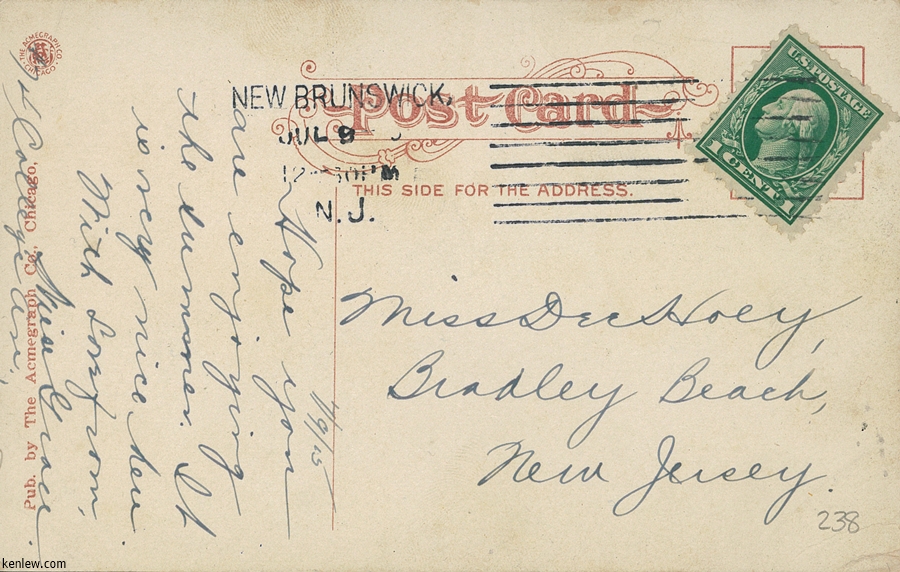 THE ACMEGRAPH CO.
CHICAGO
Post Card
THIS SIDE FOR THE ADDRESS.
NEW BRUNSWICK,
JUL 9
30PM
N.J.
U.S. POSTAGE
1 CENT 1
7/9/15
Hope you
are enjoying
the summer. It
is very nice here
With love from,
Miss Grace
College Ave.
Miss Dee Hoey,
Bradley Beach,
New Jersey.
238
Pub. by The Acmegraph Co., Chicago.
kenlew.com